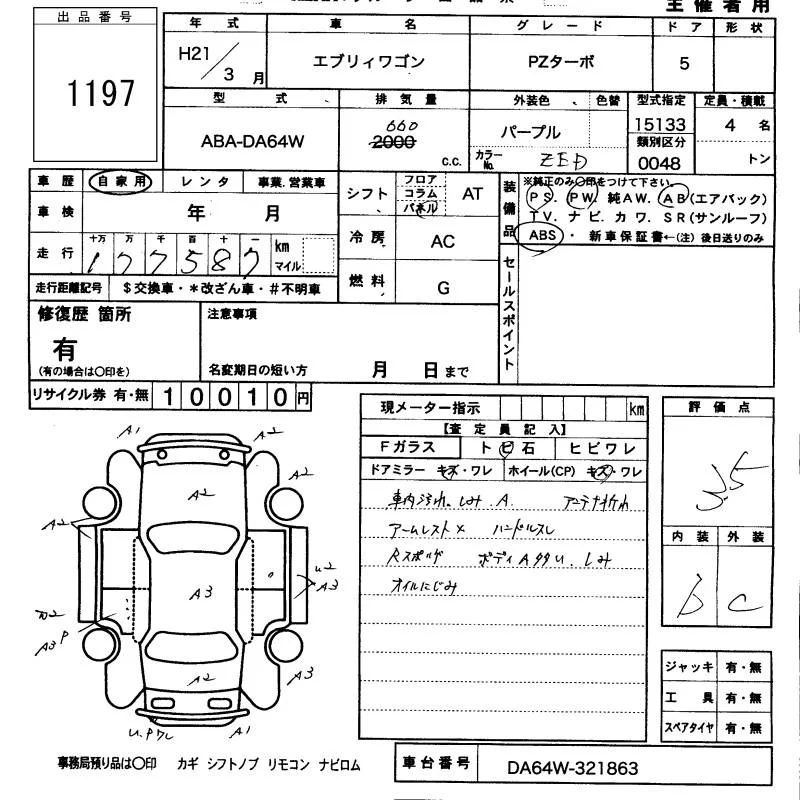 主催者用
出品番号
1197
年式 車名 グレード ドア 形状
H21/3月 エブリィワゴン PZターボ 5
型式 排気量 外装色 色替 型式指定 定員・積載
ABA-DA64W 660 2000 c.c. パープル 15133 4名
カラーNo. ZED 類別区分 0048 トン
車歴 自家用 レンタ 事業.営業車
車検 年 月
走行 十万 万 千 百 十 一 km マイル
177587
走行距離記号 $交換車・*改ざん車・#不明車
シフト フロア コラム パネル AT
冷房 AC
燃料 G
装備品 ※純正のみ〇印をつけて下さい。
PS. PW. 純AW. AB(エアバック)
TV. ナビ. カワ. SR(サンルーフ)
ABS・ 新車保証書←(注)後日送りのみ
セールスポイント
修復歴 箇所
有
(有の場合は〇印を)
注意事項
名変期日の短い方 月 日まで
リサイクル券 有・無 10010円
現メーター指示 km
【査定員記入】
Fガラス トビ石 ヒビワレ
ドアミラー キズ・ワレ ホイール(CP) キズ・ワレ
車内汚れ.しみ A. アンテナ折れ
アームレスト× ハンドルスレ
Rスポルゲ ボディA タタU. しみ
オイルにじみ
評価点
3.5
内装 外装
b C
ジャッキ 有・無
工具 有・無
スペアタイヤ 有・無
A1 A2
A2 A2
A2
U2
A3 A3
P
A3
A2 A3
U.Pワレ A1
事務局預り品は〇印 カギ シフトノブ リモコン ナビロム
車台番号 DA64W-321863